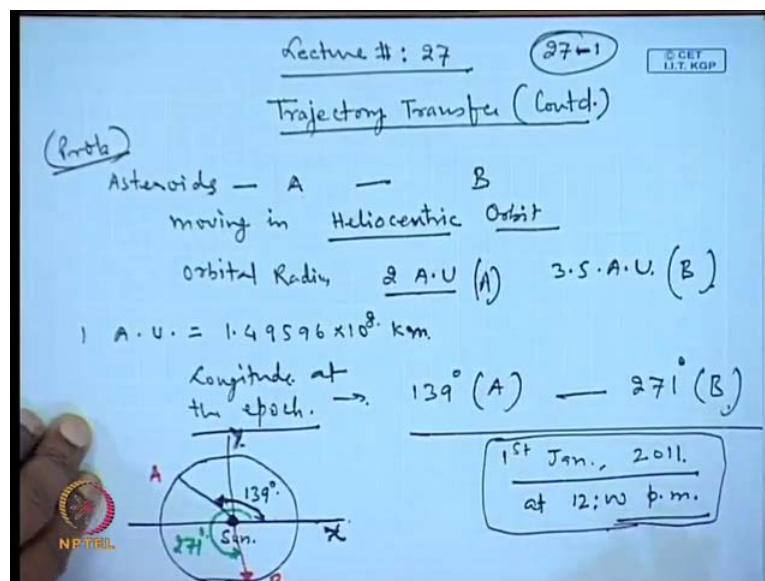 Lecture #: 27 27-1
© CET
I.I.T. KGP
Trajectory Transfer (Contd.)
(Prob)
Asteroids — A — B
moving in Heliocentric Orbit
orbital Radius 2 A.U (A) 3.5.A.U. (B)
1 A.U. = 1.49596 × 10^8 km.
Longitude at
the epoch. → 139° (A) — 271° (B)
1st Jan., 2011.
at 12:00 p.m.
Y
A
139°
Sun.
X
271°
B
NPTEL